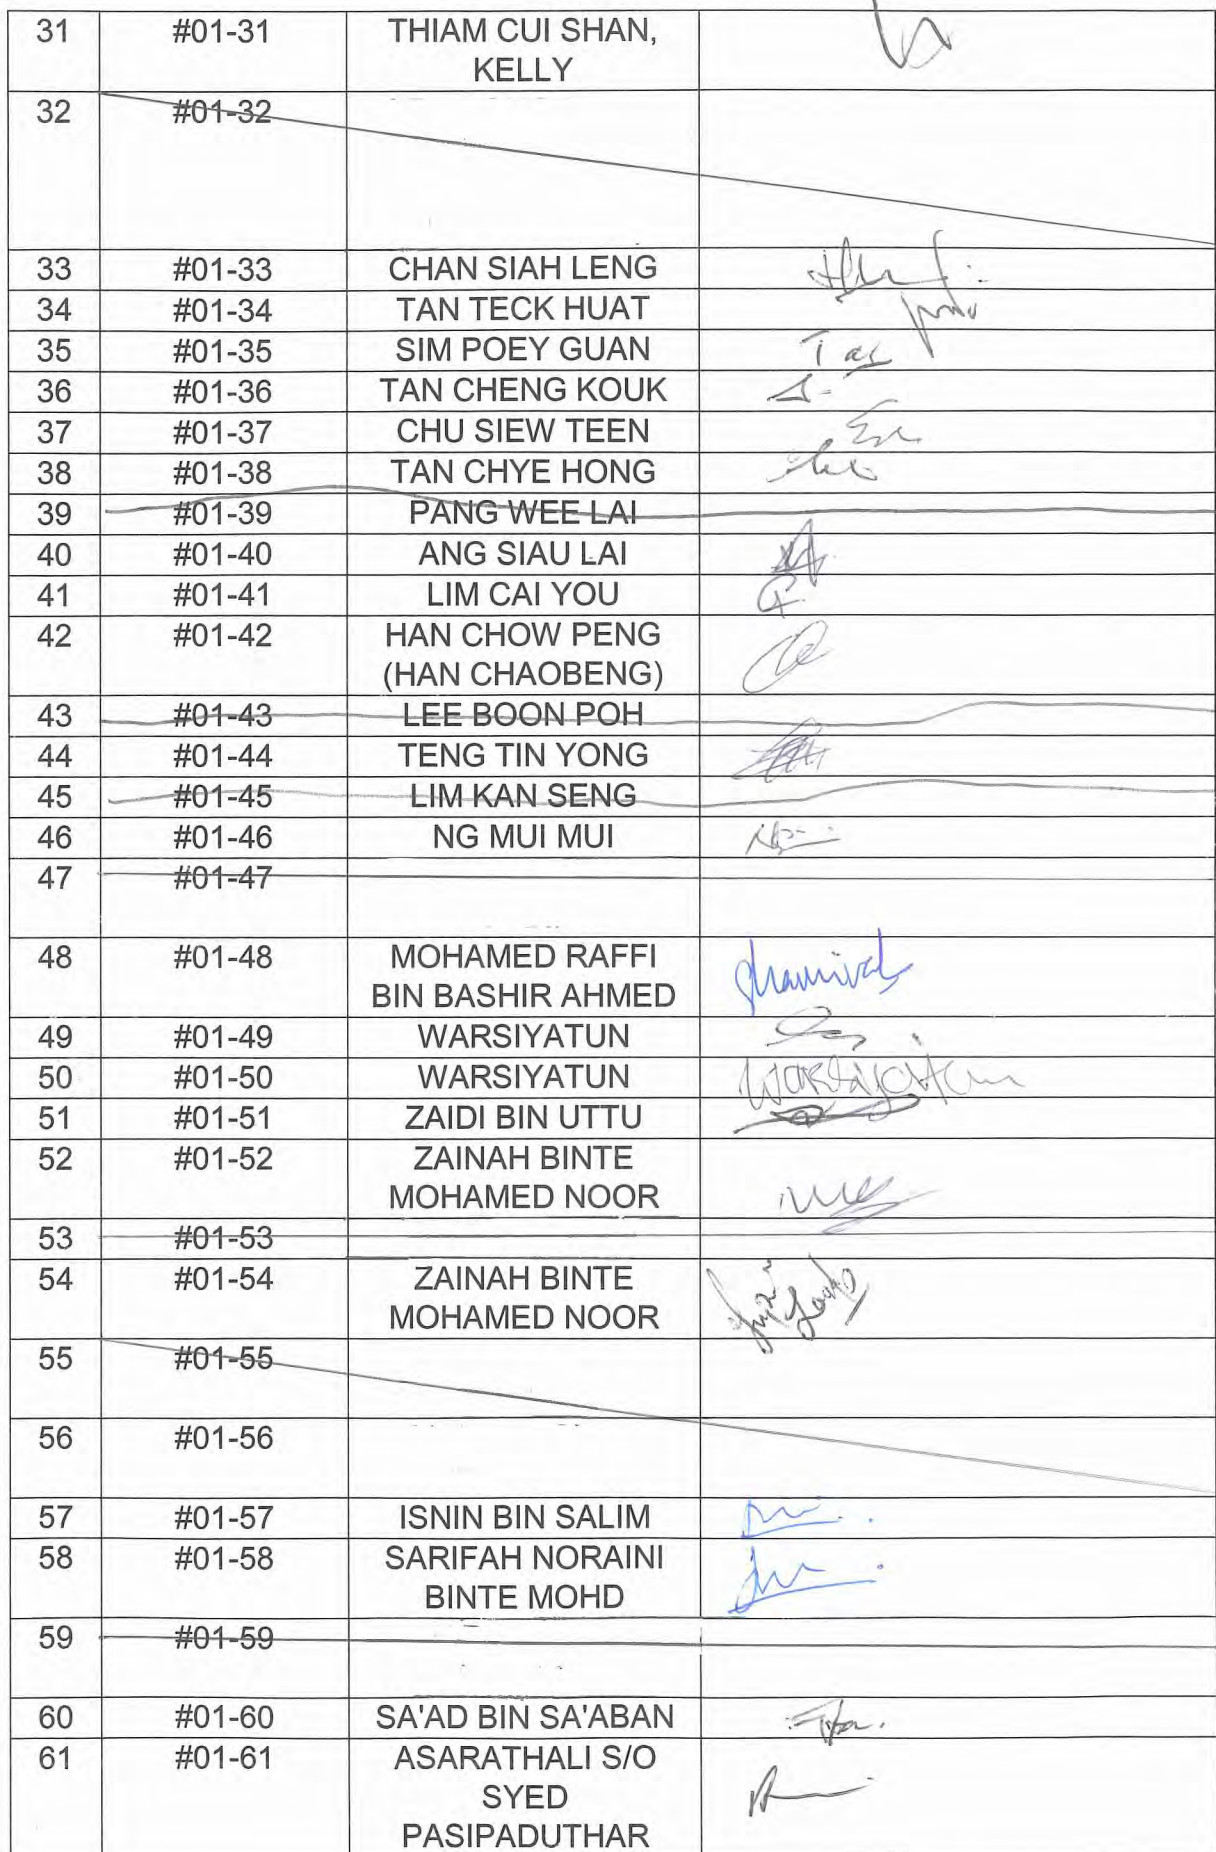 31 #01-31 THIAM CUI SHAN,
KELLY
32 #01-32
33 #01-33 CHAN SIAH LENG
34 #01-34 TAN TECK HUAT
35 #01-35 SIM POEY GUAN
36 #01-36 TAN CHENG KOUK
37 #01-37 CHU SIEW TEEN
38 #01-38 TAN CHYE HONG
39 #01-39 PANG WEE LAI
40 #01-40 ANG SIAU LAI
41 #01-41 LIM CAI YOU
42 #01-42 HAN CHOW PENG
(HAN CHAOBENG)
43 #01-43 LEE BOON POH
44 #01-44 TENG TIN YONG
45 #01-45 LIM KAN SENG
46 #01-46 NG MUI MUI
47 #01-47
48 #01-48 MOHAMED RAFFI
BIN BASHIR AHMED
49 #01-49 WARSIYATUN
50 #01-50 WARSIYATUN Warsiyatun
51 #01-51 ZAIDI BIN UTTU
52 #01-52 ZAINAH BINTE
MOHAMED NOOR
53 #01-53
54 #01-54 ZAINAH BINTE
MOHAMED NOOR
55 #01-55
56 #01-56
57 #01-57 ISNIN BIN SALIM
58 #01-58 SARIFAH NORAINI
BINTE MOHD
59 #01-59
60 #01-60 SA'AD BIN SA'ABAN
61 #01-61 ASARATHALI S/O
SYED
PASIPADUTHAR